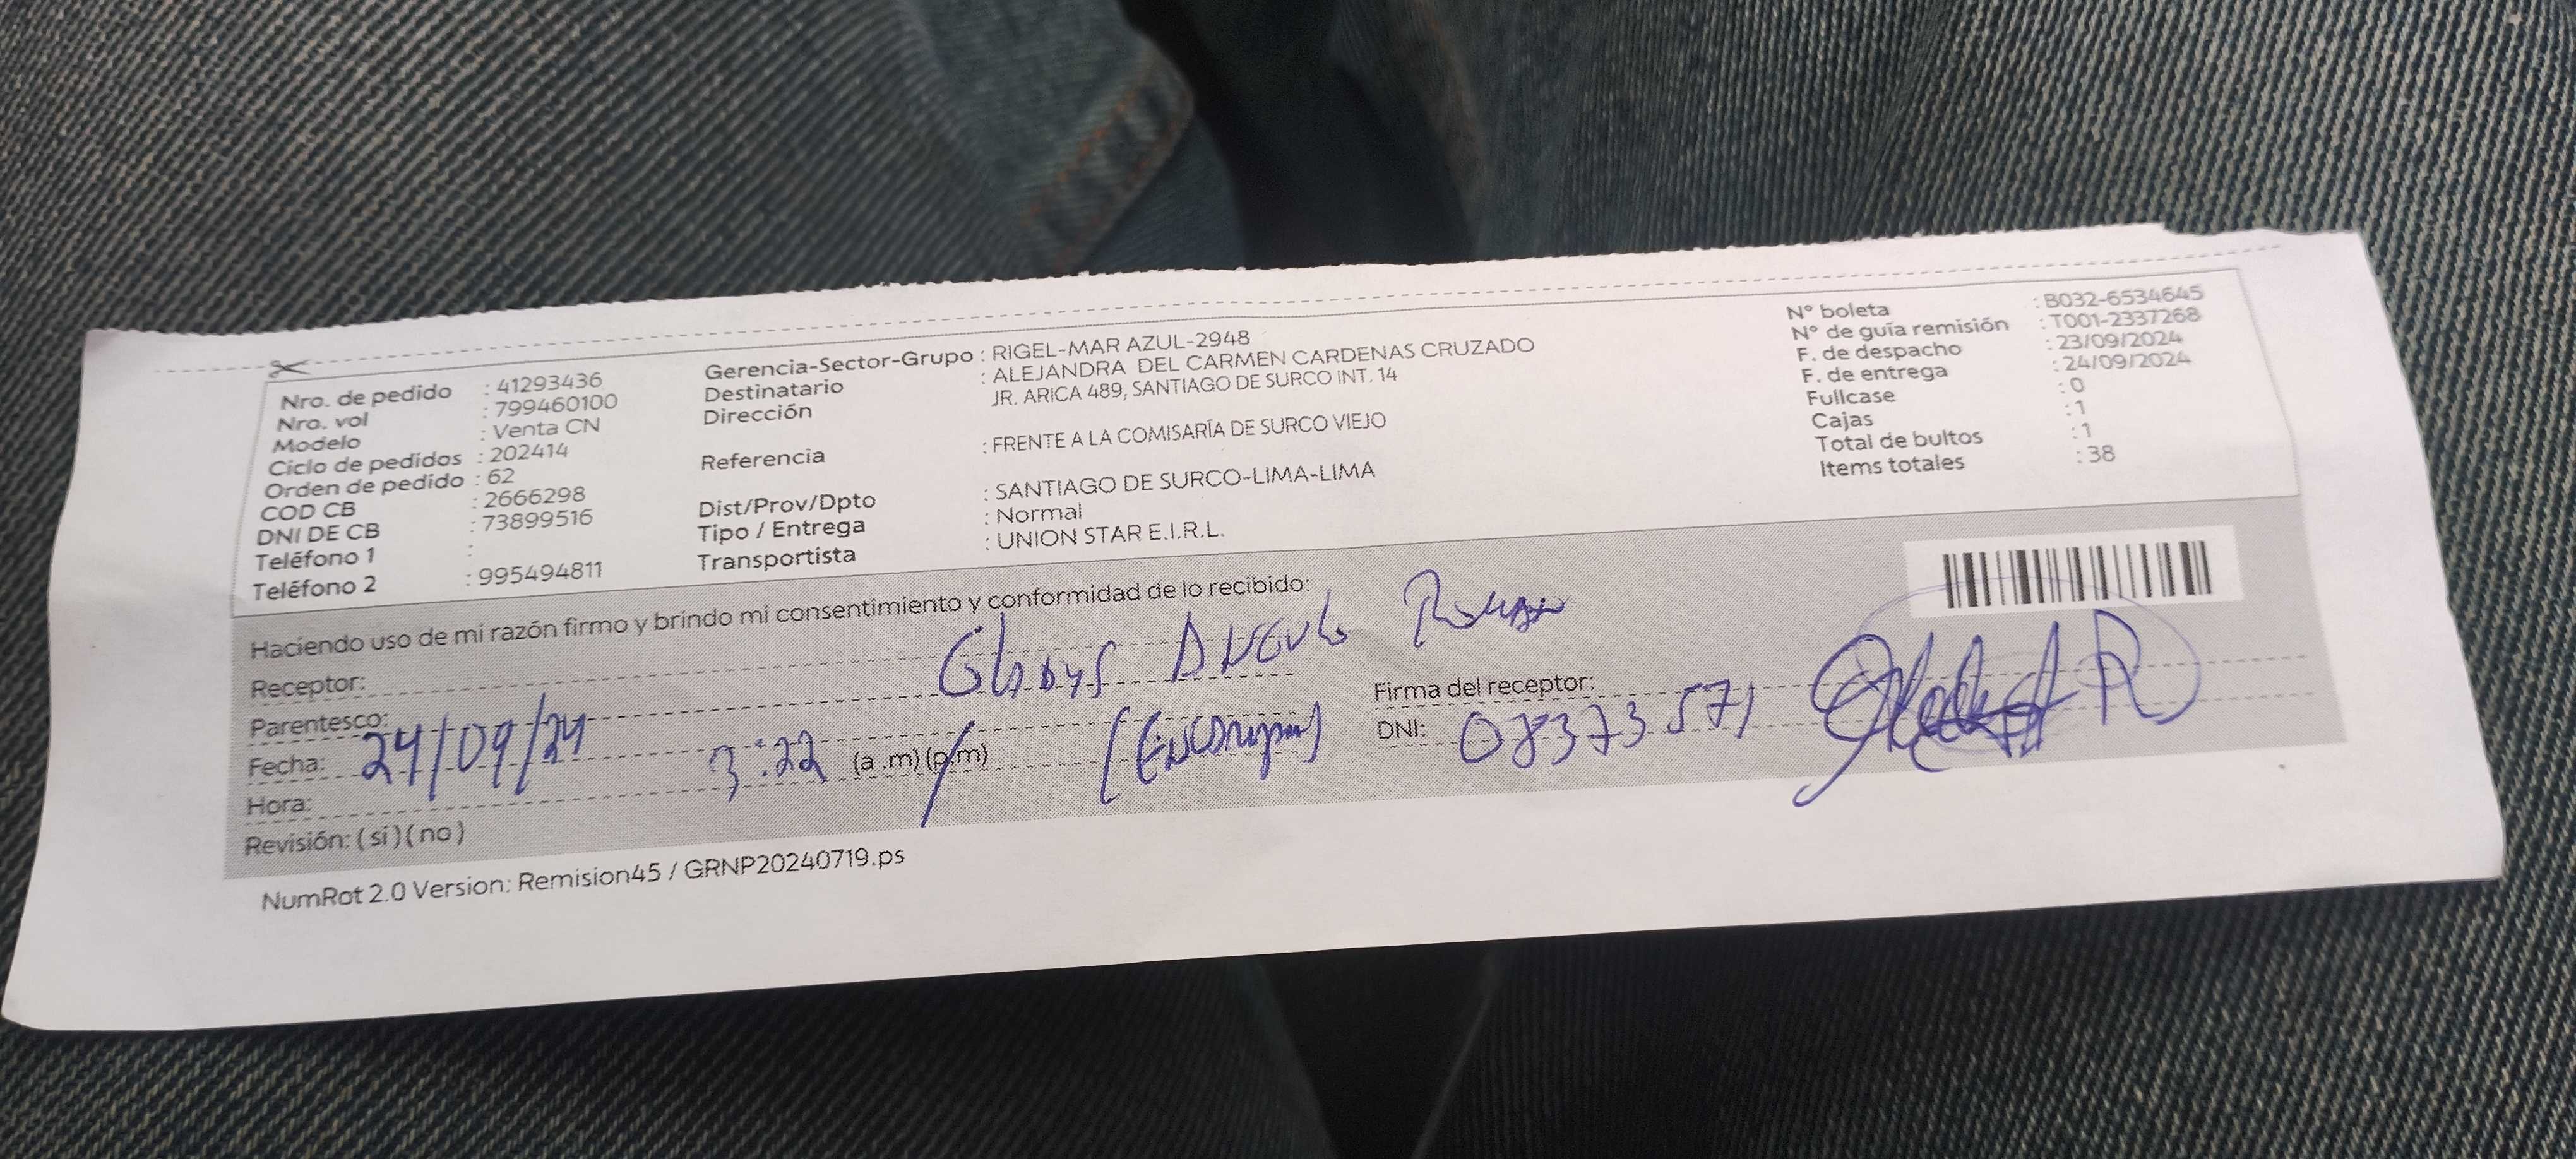 Nro. de pedido : 41293436
Nro. vol : 799460100
Modelo : Venta CN
Ciclo de pedidos : 202414
Orden de pedido : 62
COD CB : 2666298
DNI DE CB : 73899516
Teléfono 1 :
Teléfono 2 : 995494811
Gerencia-Sector-Grupo : RIGEL-MAR AZUL-2948
Destinatario : ALEJANDRA DEL CARMEN CARDENAS CRUZADO
Dirección JR. ARICA 489, SANTIAGO DE SURCO INT. 14
Referencia : FRENTE A LA COMISARÍA DE SURCO VIEJO
Dist/Prov/Dpto : SANTIAGO DE SURCO-LIMA-LIMA
Tipo / Entrega : Normal
Transportista : UNION STAR E.I.R.L.
N° boleta : B032-6534645
N° de guía remisión : T001-2337268
F. de despacho : 23/09/2024
F. de entrega : 24/09/2024
Fullcase : 0
Cajas : 1
Total de bultos : 1
Items totales : 38
Haciendo uso de mi razón firmo y brindo mi consentimiento y conformidad de lo recibido:
Receptor: Gladys Angulo
Parentesco:
Fecha: 24/09/24
Hora: 3:22 (a .m) (p.m)
Revisión: ( si ) ( no )
Firma del receptor:
DNI: 08373571
NumRot 2.0 Version: Remision45 / GRNP20240719.ps